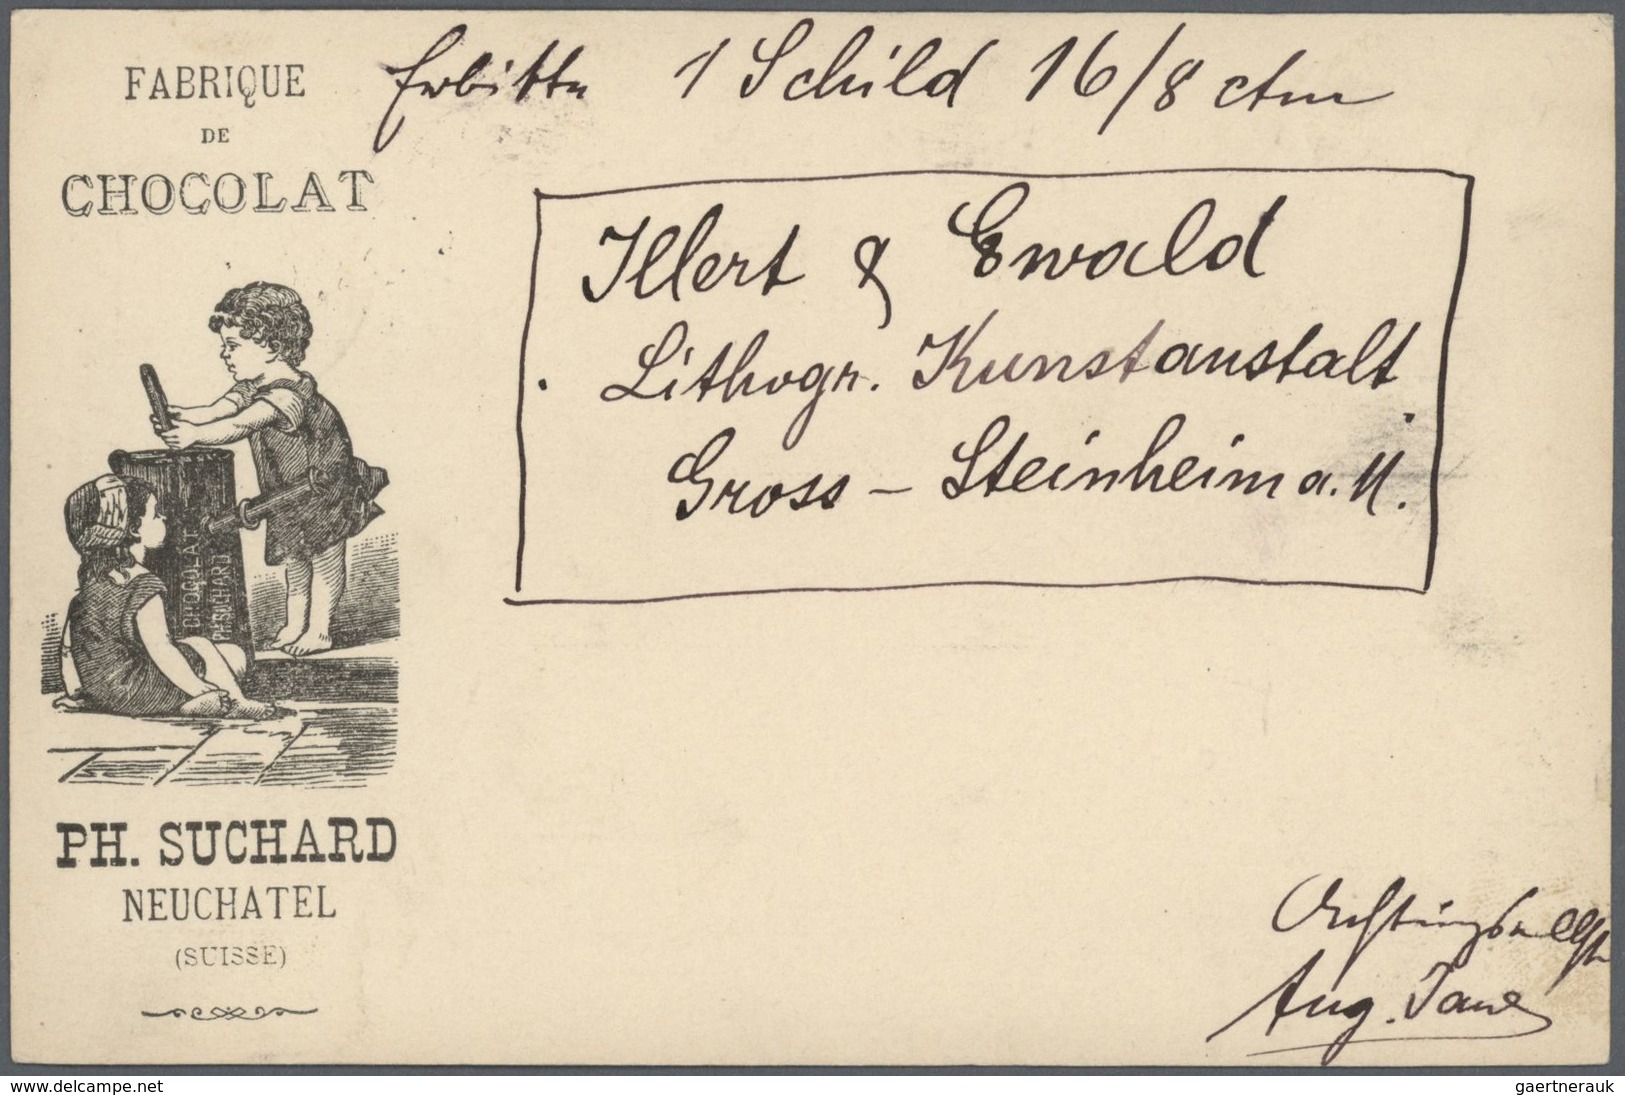 FABRIQUE
DE
CHOCOLAT
Erbitte 1 Schild 16/8 ctm
Illert & Ewald
Lithogr. Kunstanstalt
Gross-Steinheim a. M.
CHOCOLAT
PH. SUCHARD
PH. SUCHARD
NEUCHATEL
(SUISSE)
Aug.
www.delcampe.net
gaertnerauk